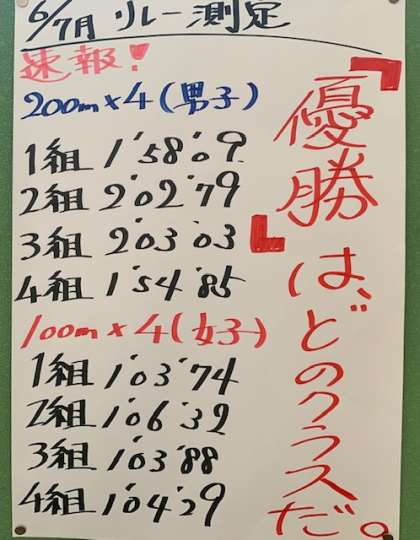 6/7月 リレー測定
速報!
200m×4(男子)
1組 1'58'09
2組 2'02'79
3組 2'03'03
4組 1'54'85
100m×4(女子)
1組 1'03'74
2組 1'06'32
3組 1'03'88
4組 1'04'29
『優勝』は、どのクラスだ。